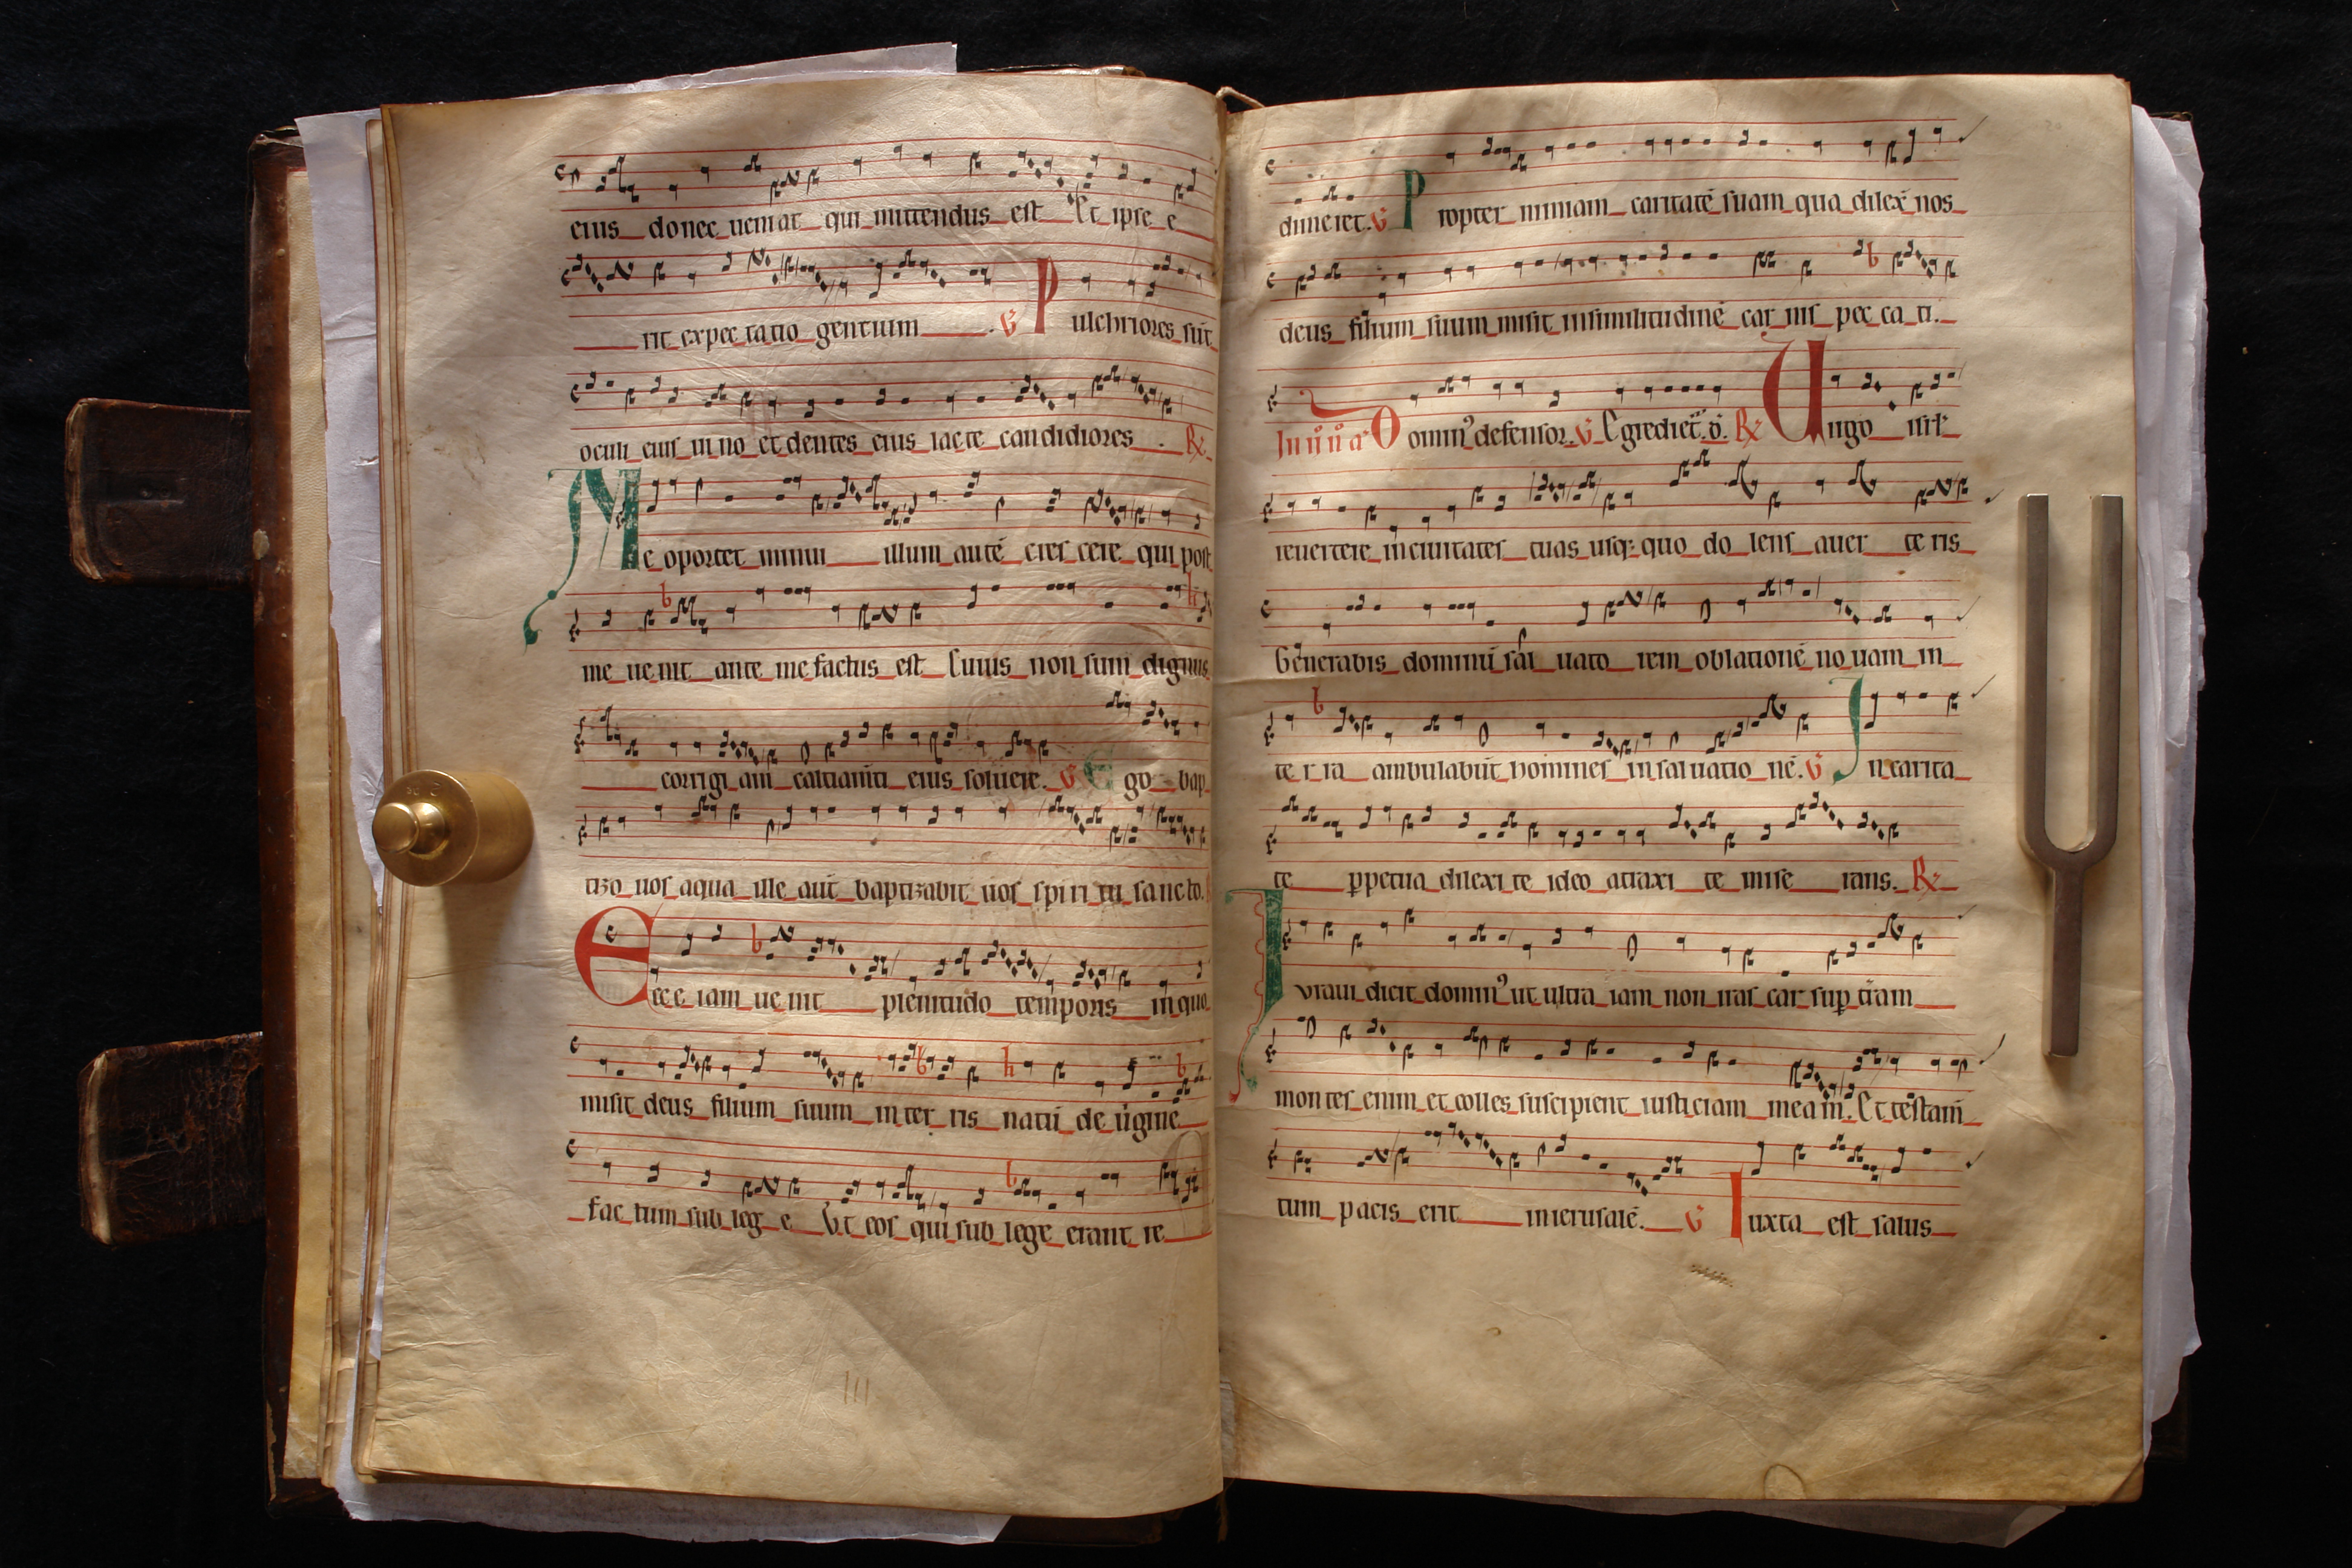 eius donec ueniat qui mittendus est Et ipse e
rit expec tatio gentium . V Pulchriores sūt
oculi eius ui no et dentes eius lacte candidiores . R
Me oportet minui illum autē cres cere qui post
me ue nit ante me factus est Cuius non sum dignus
corrigi am calciam̄ti eius soluere. V Ego bap
tizo uos aqua ille aut̄ baptizabit uos spiri tu sancto.
Ecce iam ue nit plenitudo temporis in quo
misit deus filium suum in ter ris natū de u̇gine
fac tum sub leg e Vt eos qui sub lege erant re
dimeret. V Propter nimiam caritatē suam qua dilex̄ nos
deus filium suum misit insimilitudinē car nis pec ca ti.
O omnꝰ defensor. V Egrediet̄. R Uirgo isrl̄
reuertere in ciuitates tuas usq; quo do lens auer te ris
Generabis dominū sal uato rem oblationē no uam in
te r ra ambulabūt homines in saluatio nē. V In carita
te ꝑpetua dilexi te ideo attraxi te mise rans. R
Iuraui dicit dominꝰ ut ultra iam non iras car suꝑ tr̄am
montes enim et colles suscipient iusticiam mea m. Et testam̄
tum pacis erit in ierusalē. V Iuxta est salus